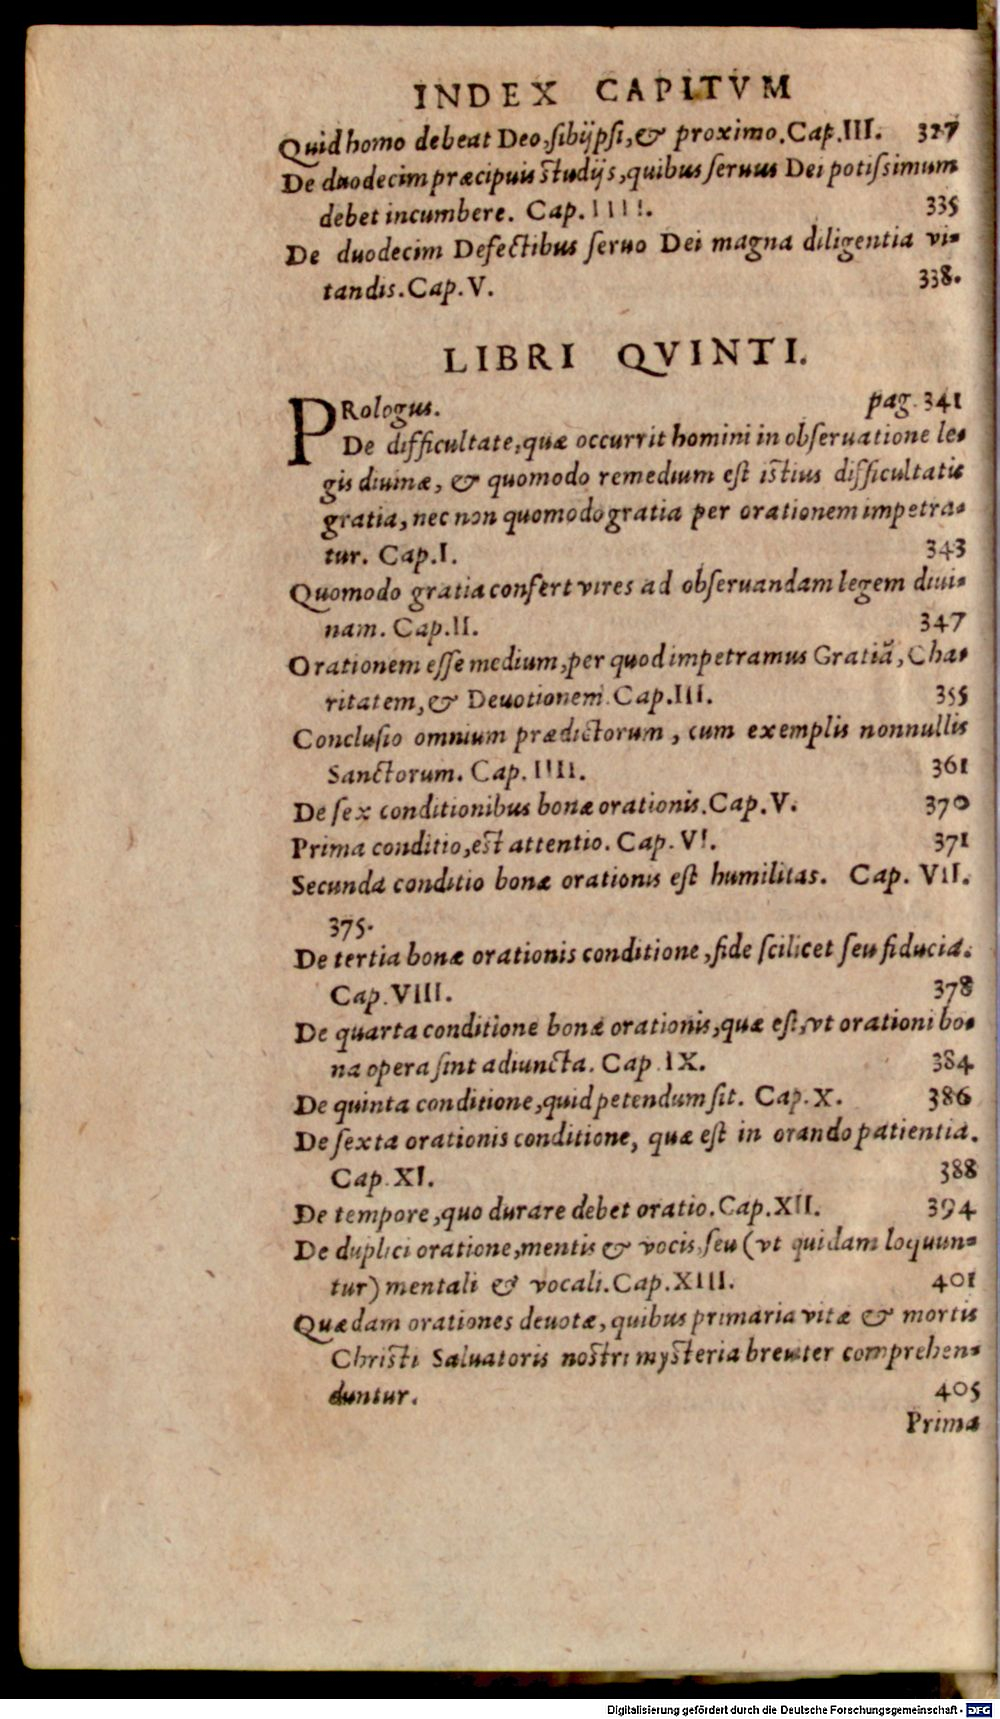 INDEX CAPITVM
Quid homo debeat Deo, sibijpsi, & proximo. Cap. III. 327
De duodecim præcipuis studijs, quibus seruus Dei potissimum
debet incumbere. Cap. IIII. 335
De duodecim Defectibus seruo Dei magna diligentia vi-
tandis. Cap. V. 338.
LIBRI QVINTI.
PRologus. pag. 341
De difficultate, quæ occurrit homini in obseruatione le-
gis diuinæ, & quomodo remedium est istius difficultatis
gratia, nec non quomodo gratia per orationem impetra-
tur. Cap. I. 343
Quomodo gratia confert vires ad obseruandam legem diui-
nam. Cap. II. 347
Orationem esse medium, per quod impetramus Gratiã, Cha-
ritatem, & Deuotionem. Cap. III. 355
Conclusio omnium prædictorum, cum exemplis nonnullis
Sanctorum. Cap. IIII. 361
De sex conditionibus bonæ orationis. Cap. V. 370
Prima conditio, est attentio. Cap. VI. 371
Secunda conditio bonæ orationis est humilitas. Cap. VII.
375.
De tertia bonæ orationis conditione, fide scilicet seu fiducia.
Cap. VIII. 378
De quarta conditione bonæ orationis, quæ est, vt orationi bo-
na opera sint adiuncta. Cap. IX. 384
De quinta conditione, quid petendum sit. Cap. X. 386
De sexta orationis conditione, quæ est in orando patientia.
Cap. XI. 388
De tempore, quo durare debet oratio. Cap. XII. 394
De duplici oratione, mentis & vocis, seu (vt quidam loquun-
tur) mentali & vocali. Cap. XIII. 401
Quædam orationes deuotæ, quibus primaria vitæ & mortis
Christi Saluatoris nostri mysteria breuiter comprehen-
duntur. 405
Prima
Digitalisierung gefördert durch die Deutsche Forschungsgemeinschaft - DFG